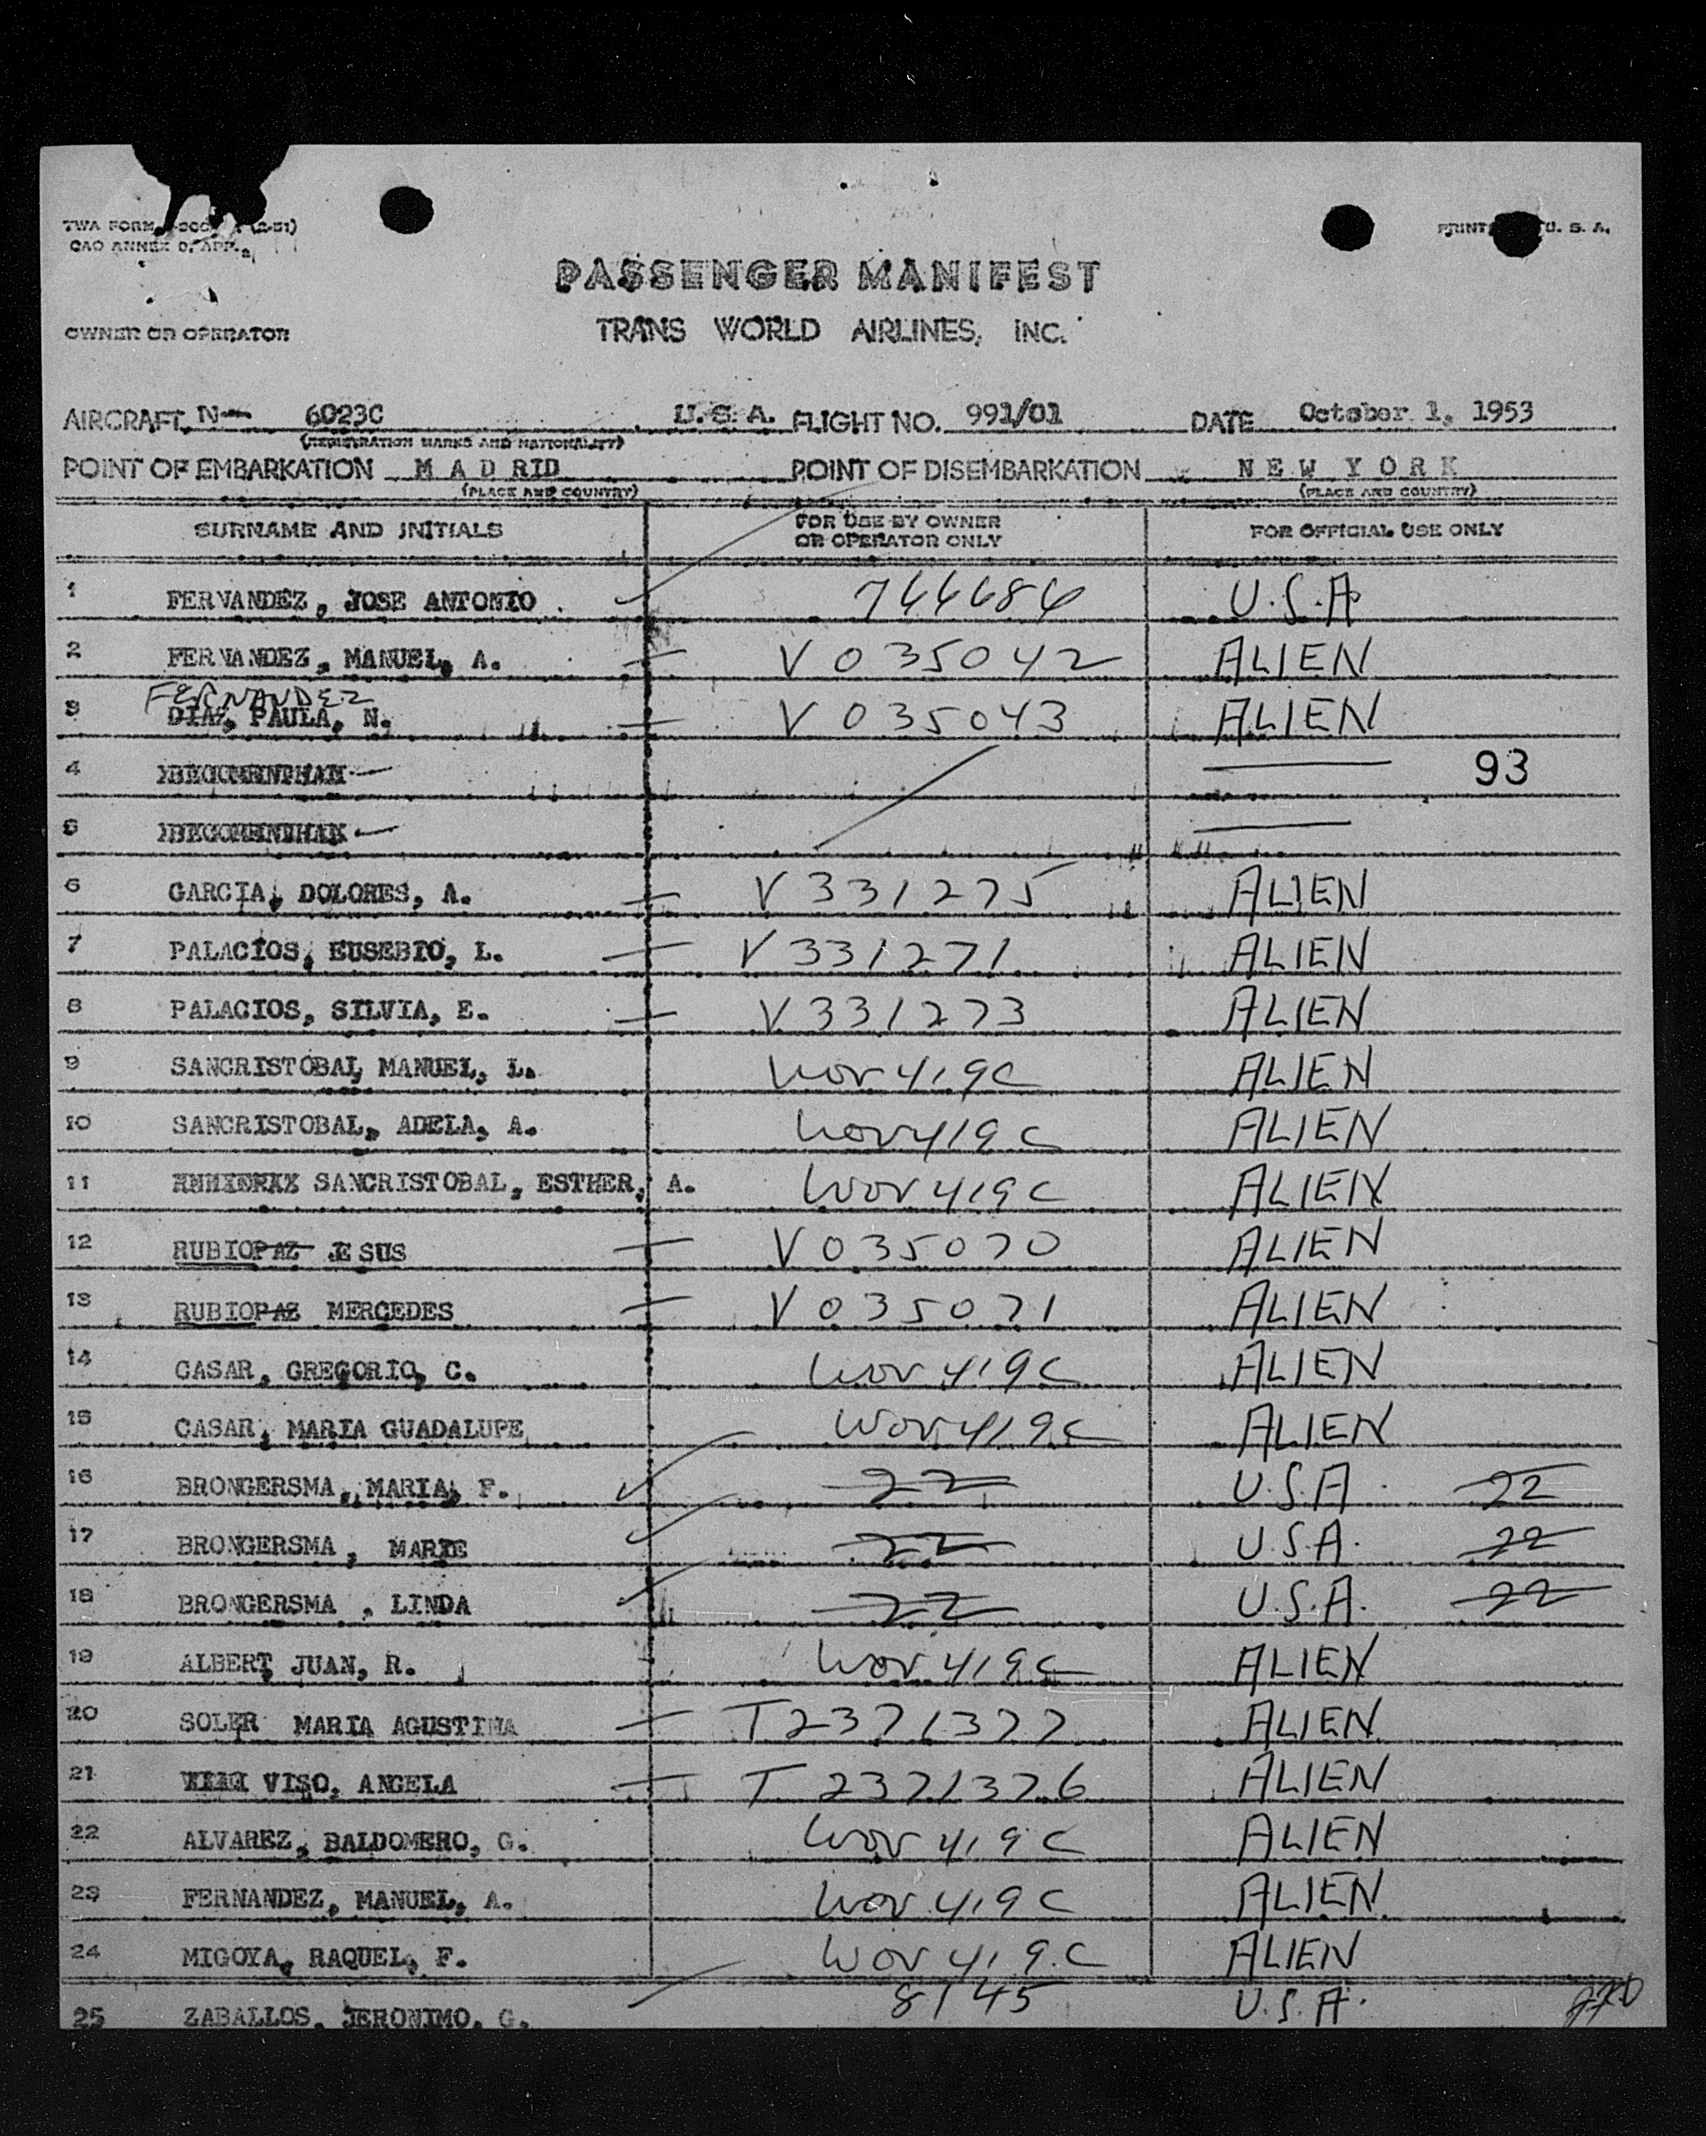 TWA FORM (2-51)
CAO ANNEX 9, APP.
PRINTED U. S. A.
PASSENGER MANIFEST
OWNER OR OPERATOR TRANS WORLD AIRLINES, INC.
AIRCRAFT N- 6023C U.S.A. FLIGHT NO. 991/01 DATE October 1, 1953
(REGISTRATION MARKS AND NATIONALITY)
POINT OF EMBARKATION M A D R I D POINT OF DISEMBARKATION N E W Y O R K
(PLACE AND COUNTRY) (PLACE AND COUNTRY)
SURNAME AND INITIALS FOR USE BY OWNER OR OPERATOR ONLY FOR OFFICIAL USE ONLY
1 FERNANDEZ, JOSE ANTONIO U.S.A
2 FERNANDEZ, MANUEL, A. V 035042 ALIEN
FERNANDEZ
3 DIAZ, PAULA, N. V 035043 ALIEN
4 93
5
6 GARCIA, DOLORES, A. V 331275 ALIEN
7 PALACIOS, EUSEBIO, L. V 331271 ALIEN
8 PALACIOS, SILVIA, E. V 331273 ALIEN
9 SANCRISTOBAL, MANUEL, L. WOV 419C ALIEN
10 SANCRISTOBAL, ADELA, A. WOV 419C ALIEN
11 SANCRISTOBAL, ESTHER, A. WOV 419C ALIEN
12 RUBIOPAZ JESUS V 035070 ALIEN
13 RUBIOPAZ MERCEDES V 035071 ALIEN
14 CASAR, GREGORIO, C. WOV 419C ALIEN
15 CASAR, MARIA GUADALUPE WOV 419C ALIEN
16 BRONGERSMA, MARIA, F. 22 U.S.A 22
17 BRONGERSMA, MARIE 22 U.S.A. 22
18 BRONGERSMA, LINDA 22 U.S.A. 22
19 ALBERT, JUAN, R. WOV 419C ALIEN
20 SOLER MARIA AGUSTINA T2371377 ALIEN
21 VISO, ANGELA T 2371376 ALIEN
22 ALVAREZ, BALDOMERO, G. WOV 419C ALIEN
23 FERNANDEZ, MANUEL, A. WOV 419C ALIEN
24 MIGOYA, RAQUEL, F. WOV 419C ALIEN
25 ZABALLOS, JERONIMO, G. 8145 U.S.A.